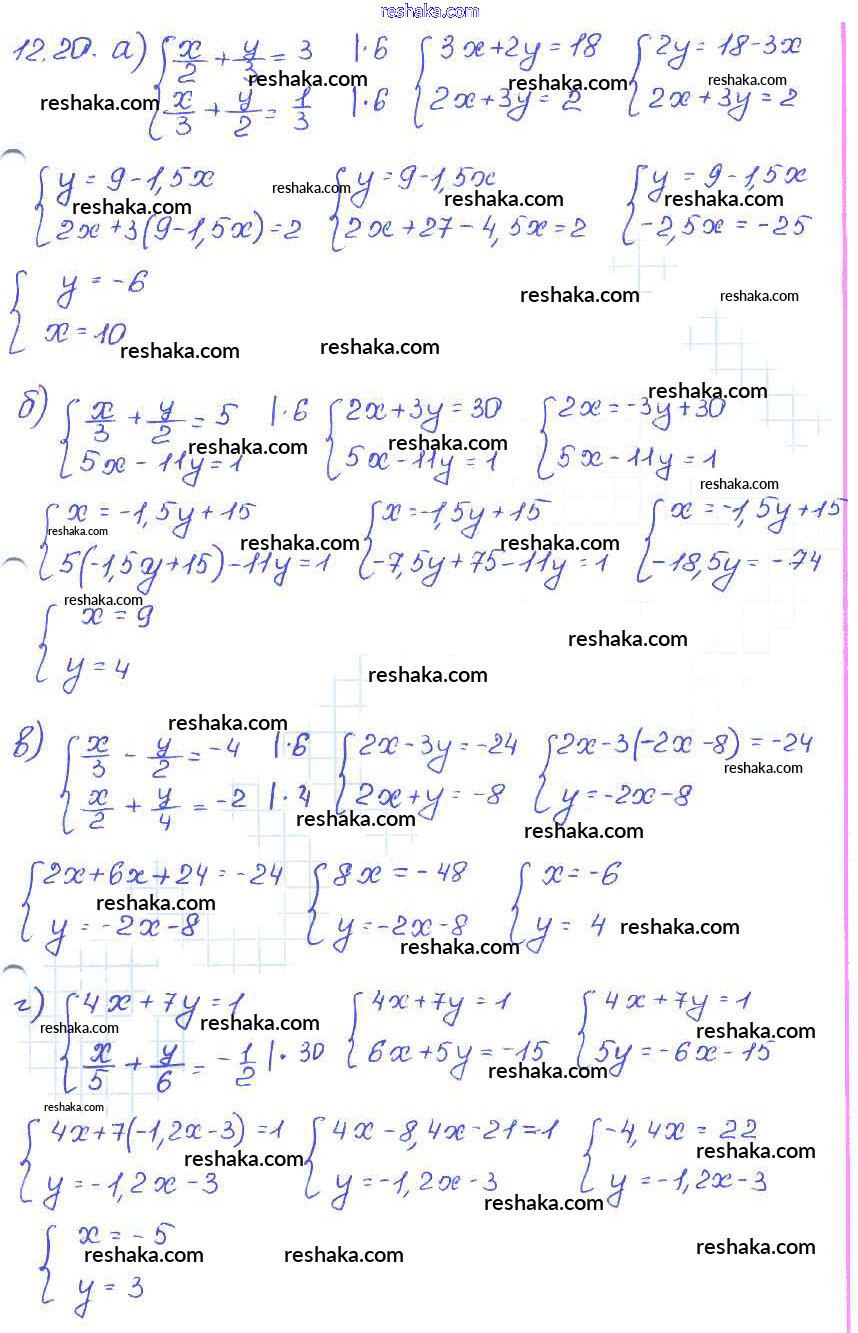 reshaka.com
12.20. а) { x/2 + y/3 = 3 |·6 { 3x+2y=18 { 2y=18-3x
x/3 + y/2 = 1/3 |·6 2x+3y=2 2x+3y=2
reshaka.com reshaka.com reshaka.com reshaka.com
{ y=9-1,5x { y=9-1,5x { y=9-1,5x
2x+3(9-1,5x)=2 2x+27-4,5x=2 -2,5x=-25
reshaka.com reshaka.com reshaka.com reshaka.com
{ y=-6
x=10
reshaka.com reshaka.com
reshaka.com reshaka.com
б) { x/3 + y/2 = 5 |·6 { 2x+3y=30 { 2x=-3y+30
5x-11y=1 5x-11y=1 5x-11y=1
reshaka.com reshaka.com reshaka.com
reshaka.com
{ x=-1,5y+15 { x=-1,5y+15 { x=-1,5y+15
5(-1,5y+15)-11y=1 -7,5y+75-11y=1 -18,5y=-74
reshaka.com reshaka.com reshaka.com
{ x=9
y=4
reshaka.com reshaka.com
reshaka.com
reshaka.com
в) { x/3 - y/2 = -4 |·6 { 2x-3y=-24 { 2x-3(-2x-8)=-24
x/2 + y/4 = -2 |·4 2x+y=-8 y=-2x-8
reshaka.com reshaka.com reshaka.com
{ 2x+6x+24=-24 { 8x=-48 { x=-6
y=-2x-8 y=-2x-8 y=4
reshaka.com reshaka.com reshaka.com
г) { 4x+7y=1 { 4x+7y=1 { 4x+7y=1
x/5 + y/6 = -1/2 |·30 6x+5y=-15 5y=-6x-15
reshaka.com reshaka.com reshaka.com reshaka.com
reshaka.com
{ 4x+7(-1,2x-3)=1 { 4x-8,4x-21=1 { -4,4x=22
y=-1,2x-3 y=-1,2x-3 y=-1,2x-3
reshaka.com reshaka.com reshaka.com
{ x=-5
y=3
reshaka.com reshaka.com reshaka.com